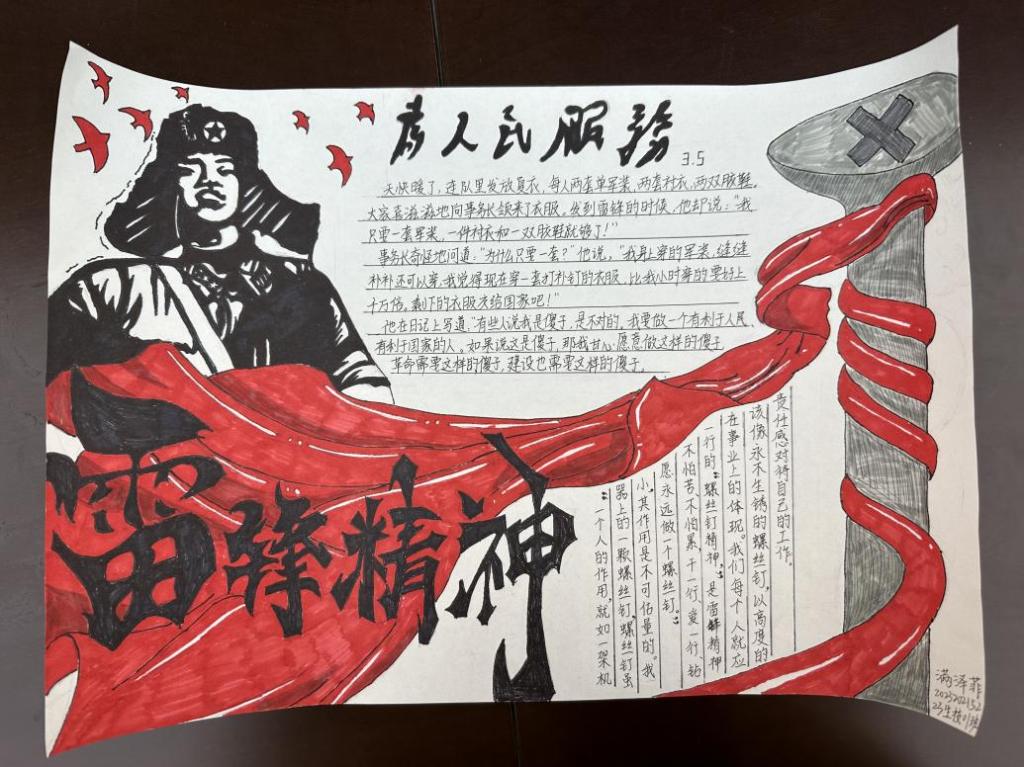 为人民服務
3.5
天快暖了,连队里发放夏衣,每人两套单军装,两套衬衣,两双胶鞋。
大家喜滋滋地向事务长领来了衣服。发到雷锋的时候,他却说:"我
只要一套军装,一件衬衣和一双胶鞋就够了!"
事务长奇怪地问道:"为什么只要一套?"他说,"我身上穿的军装,缝缝
补补还可以穿,我觉得现在穿一套打补钉的衣服,比我小时穿的要好上
十万倍。剩下的衣服交给国家吧!"
他在日记上写道:"有些人说我是傻子,是不对的。我要做一个有利于人民、
有利于国家的人。如果说这是傻子,那我甘心愿意做这样的傻子
革命需要这样的傻子,建设也需要这样的傻子。
雷锋精神
"一个人的作用,就如一架机
器上的一颗螺丝钉,螺丝钉虽
小,其作用是不可估量的。我
愿永远做一个螺丝钉。"
不怕苦、不怕累、干一行、爱一行、钻
一行的"螺丝钉精神",是雷锋精神
在事业上的体现。我们每个人就应
该像永不生锈的螺丝钉,以高度的
责任感对待自己的工作。
满泽菲
23生技1班